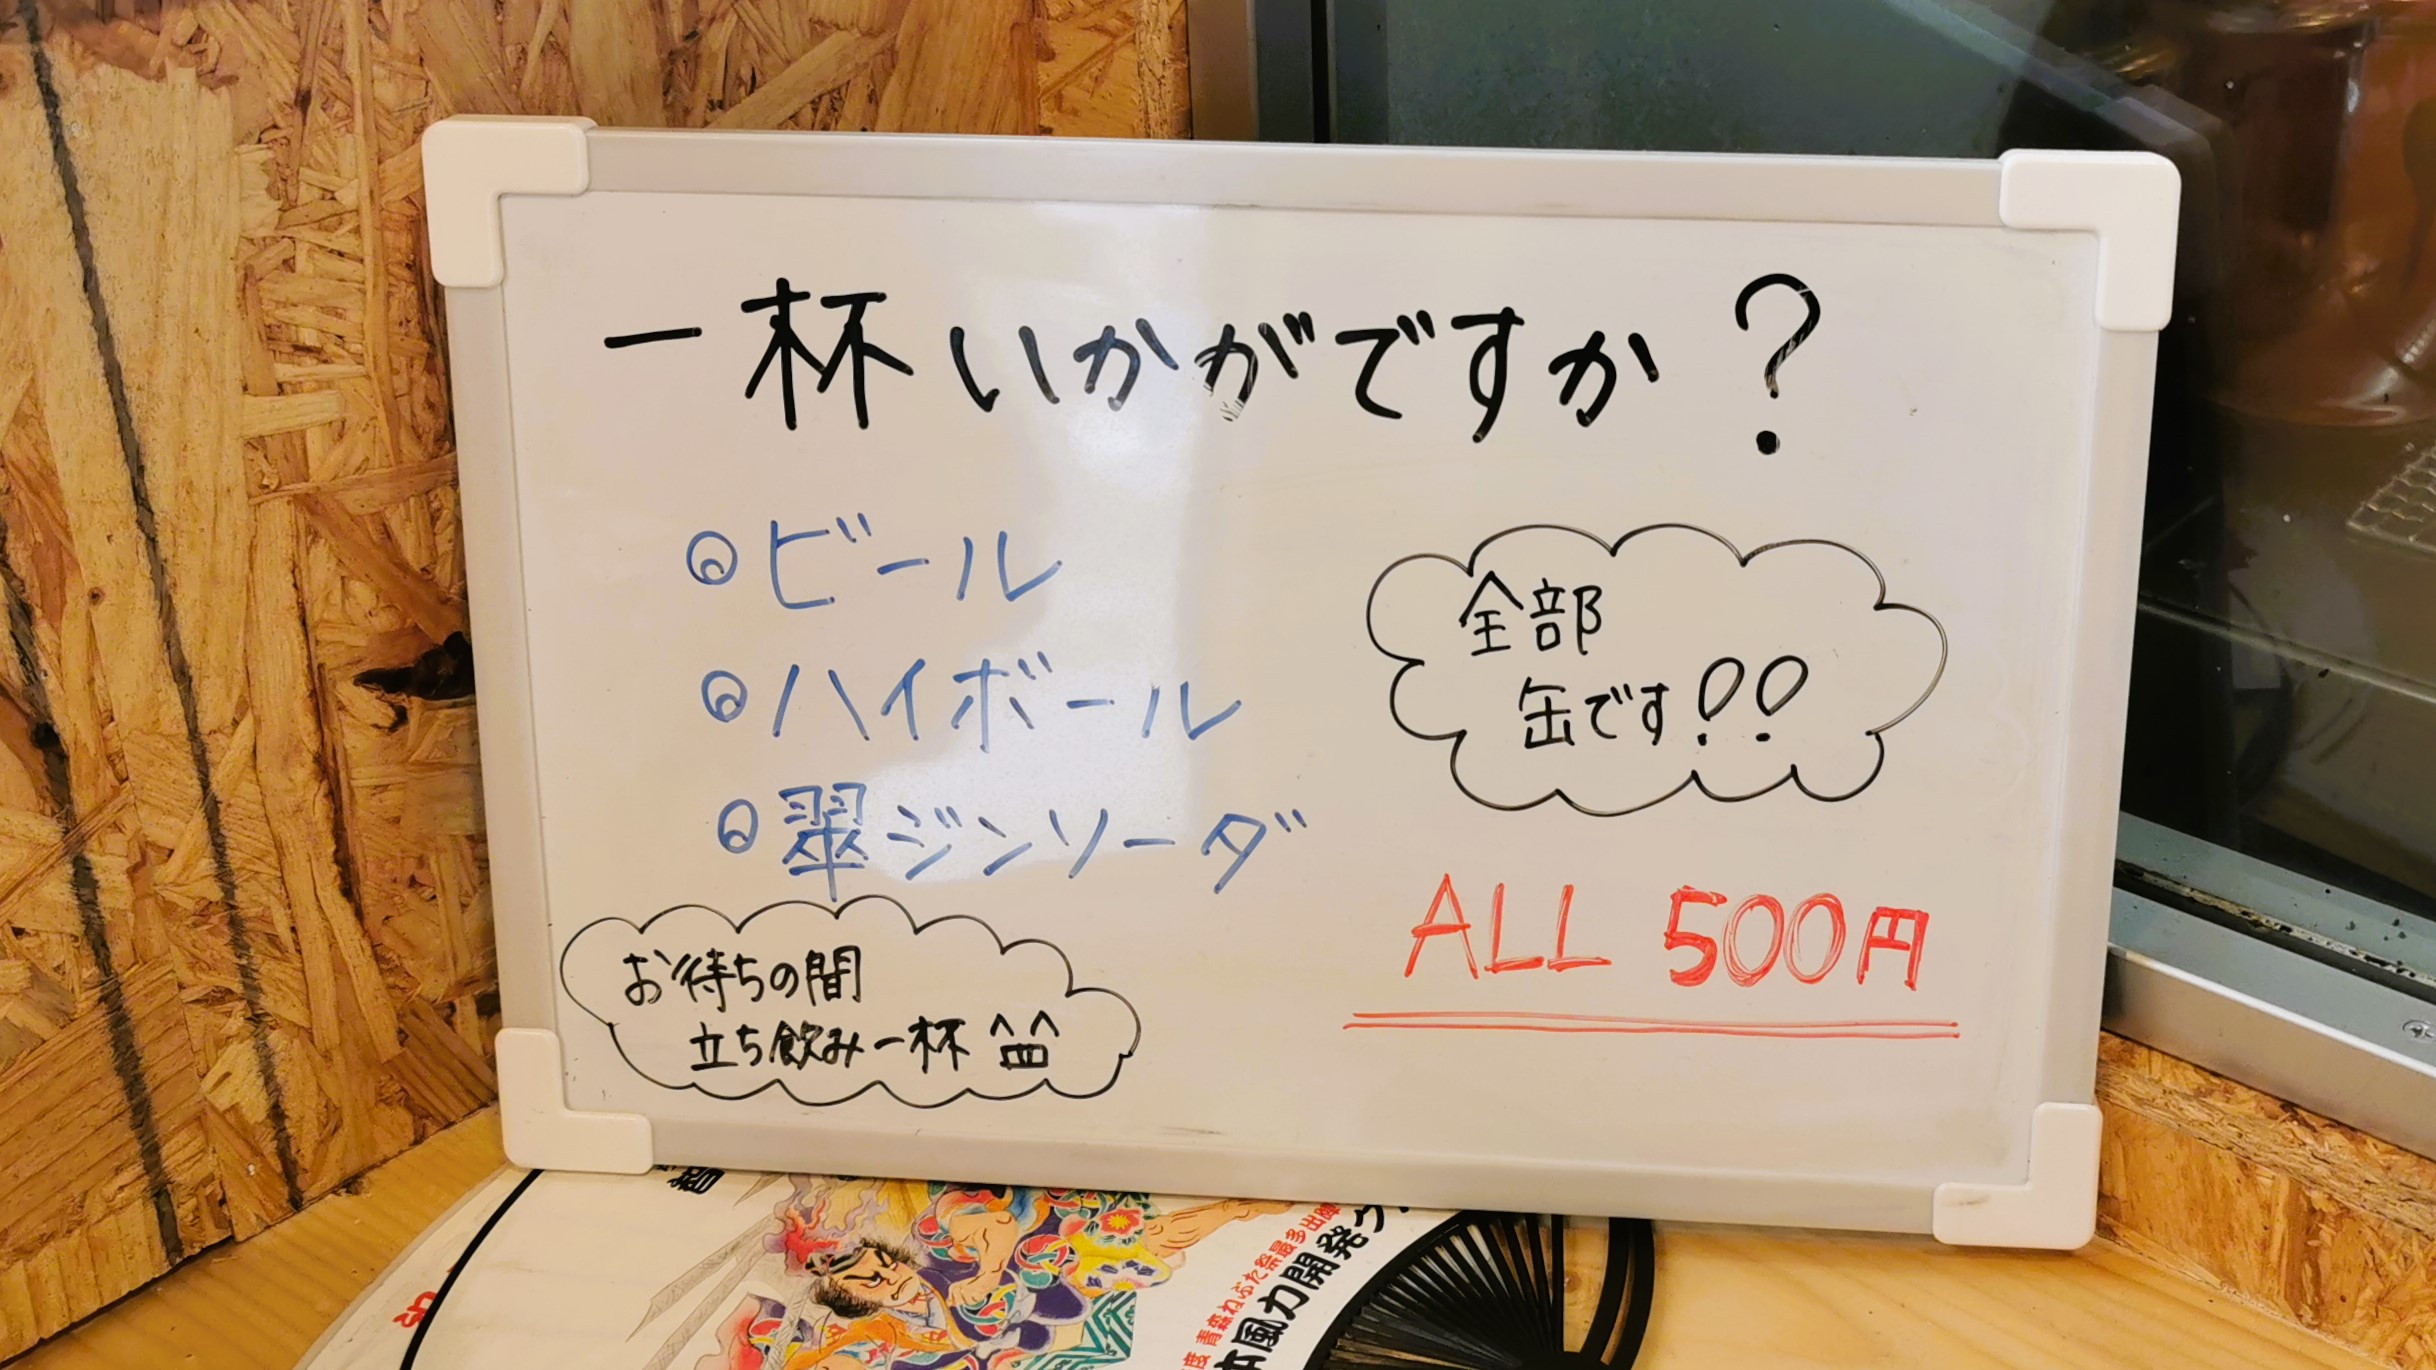 一杯いかがですか?
◎ビール
◎ハイボール
◎翠ジンソーダ
全部
缶です!!
ALL 500円
お待ちの間
立ち飲み一杯 ^皿^
青森ねぶた祭最多出陣
風力開発